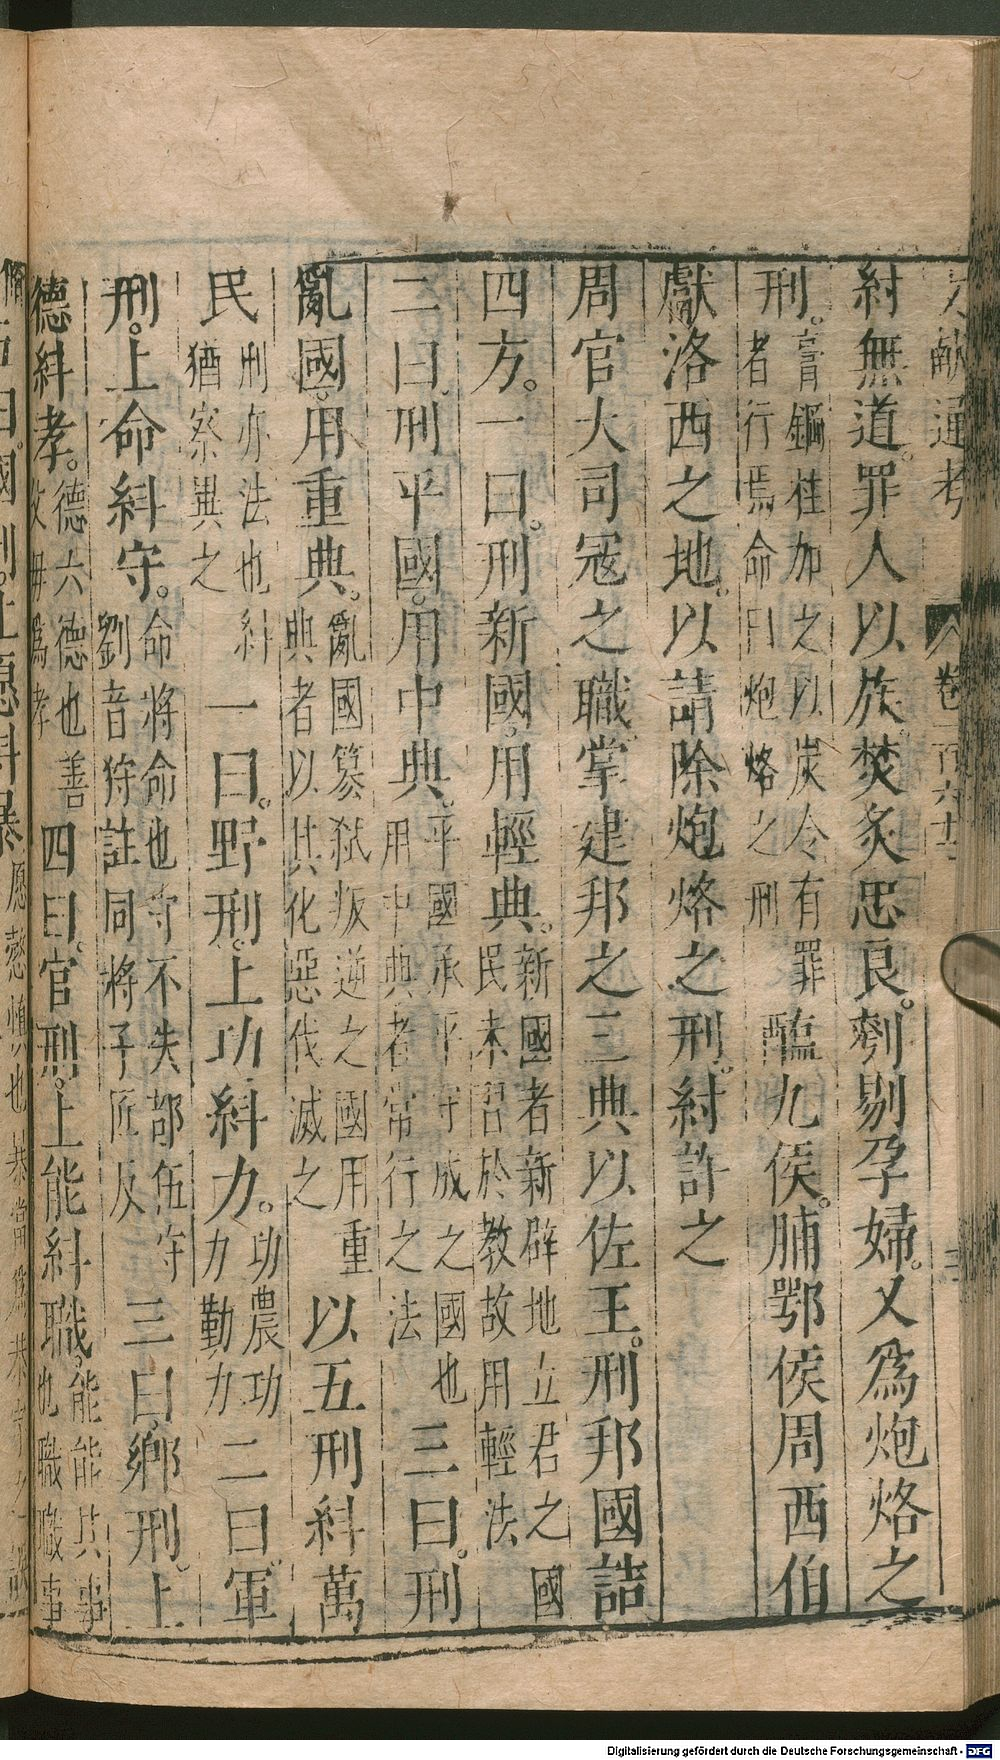 文獻通考 卷一百六十二
紂無道罪人以族焚炙忠良。刳剔孕婦。又爲炮烙之
刑。膏銅柱加之以炭令有罪者行焉命曰炮烙之刑醢九侯。脯鄂侯周西伯
獻洛西之地。以請除炮烙之刑。紂許之
周官大司寇之職掌建邦之三典以佐王。刑邦國詰
四方。一曰。刑新國。用輕典。新國者新辟地立君之國民未習於教故用輕法
二曰。刑平國。用中典。平國承平守成之國也用中典者常行之法三曰。刑
亂國。用重典。亂國篡弑叛逆之國用重典者以其化惡伐滅之以五刑糾萬
民刑亦法也糾猶察異之一曰。野刑。上功糾力。功農功力勤力二曰。軍
刑。上命糾守。命將命也守不失部伍守劉音狩註同將子匠反三曰。鄉刑。上
德糾孝。德六德也善父母爲孝四曰。官刑。上能糾職。能能其事也職職事
五曰。國刑。上愿糾暴愿慤慎也恭當爲恭
Digitalisierung gefördert durch die Deutsche Forschungsgemeinschaft - DFG